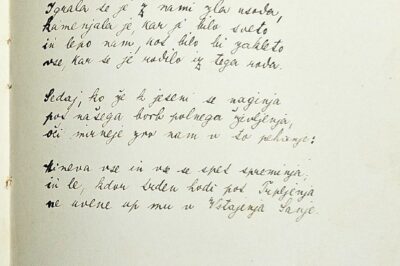 Igrala se je z nami zla usoda,
kamenjala je, kar ji bilo sveto
in lepo nam, kos bilo bi zakleto
vse, kar se je rodilo iz tega roda.
Sedaj, ko že k jeseni se naginja
pot našega borb polnega življenja,
oči mirneje zro nam v to pehanje:
mineva vse in vse se spet spreminja,
in le, kdor srčen hodi pot Trpljenja
ne uvene up mu v Vstajenja Sanje.